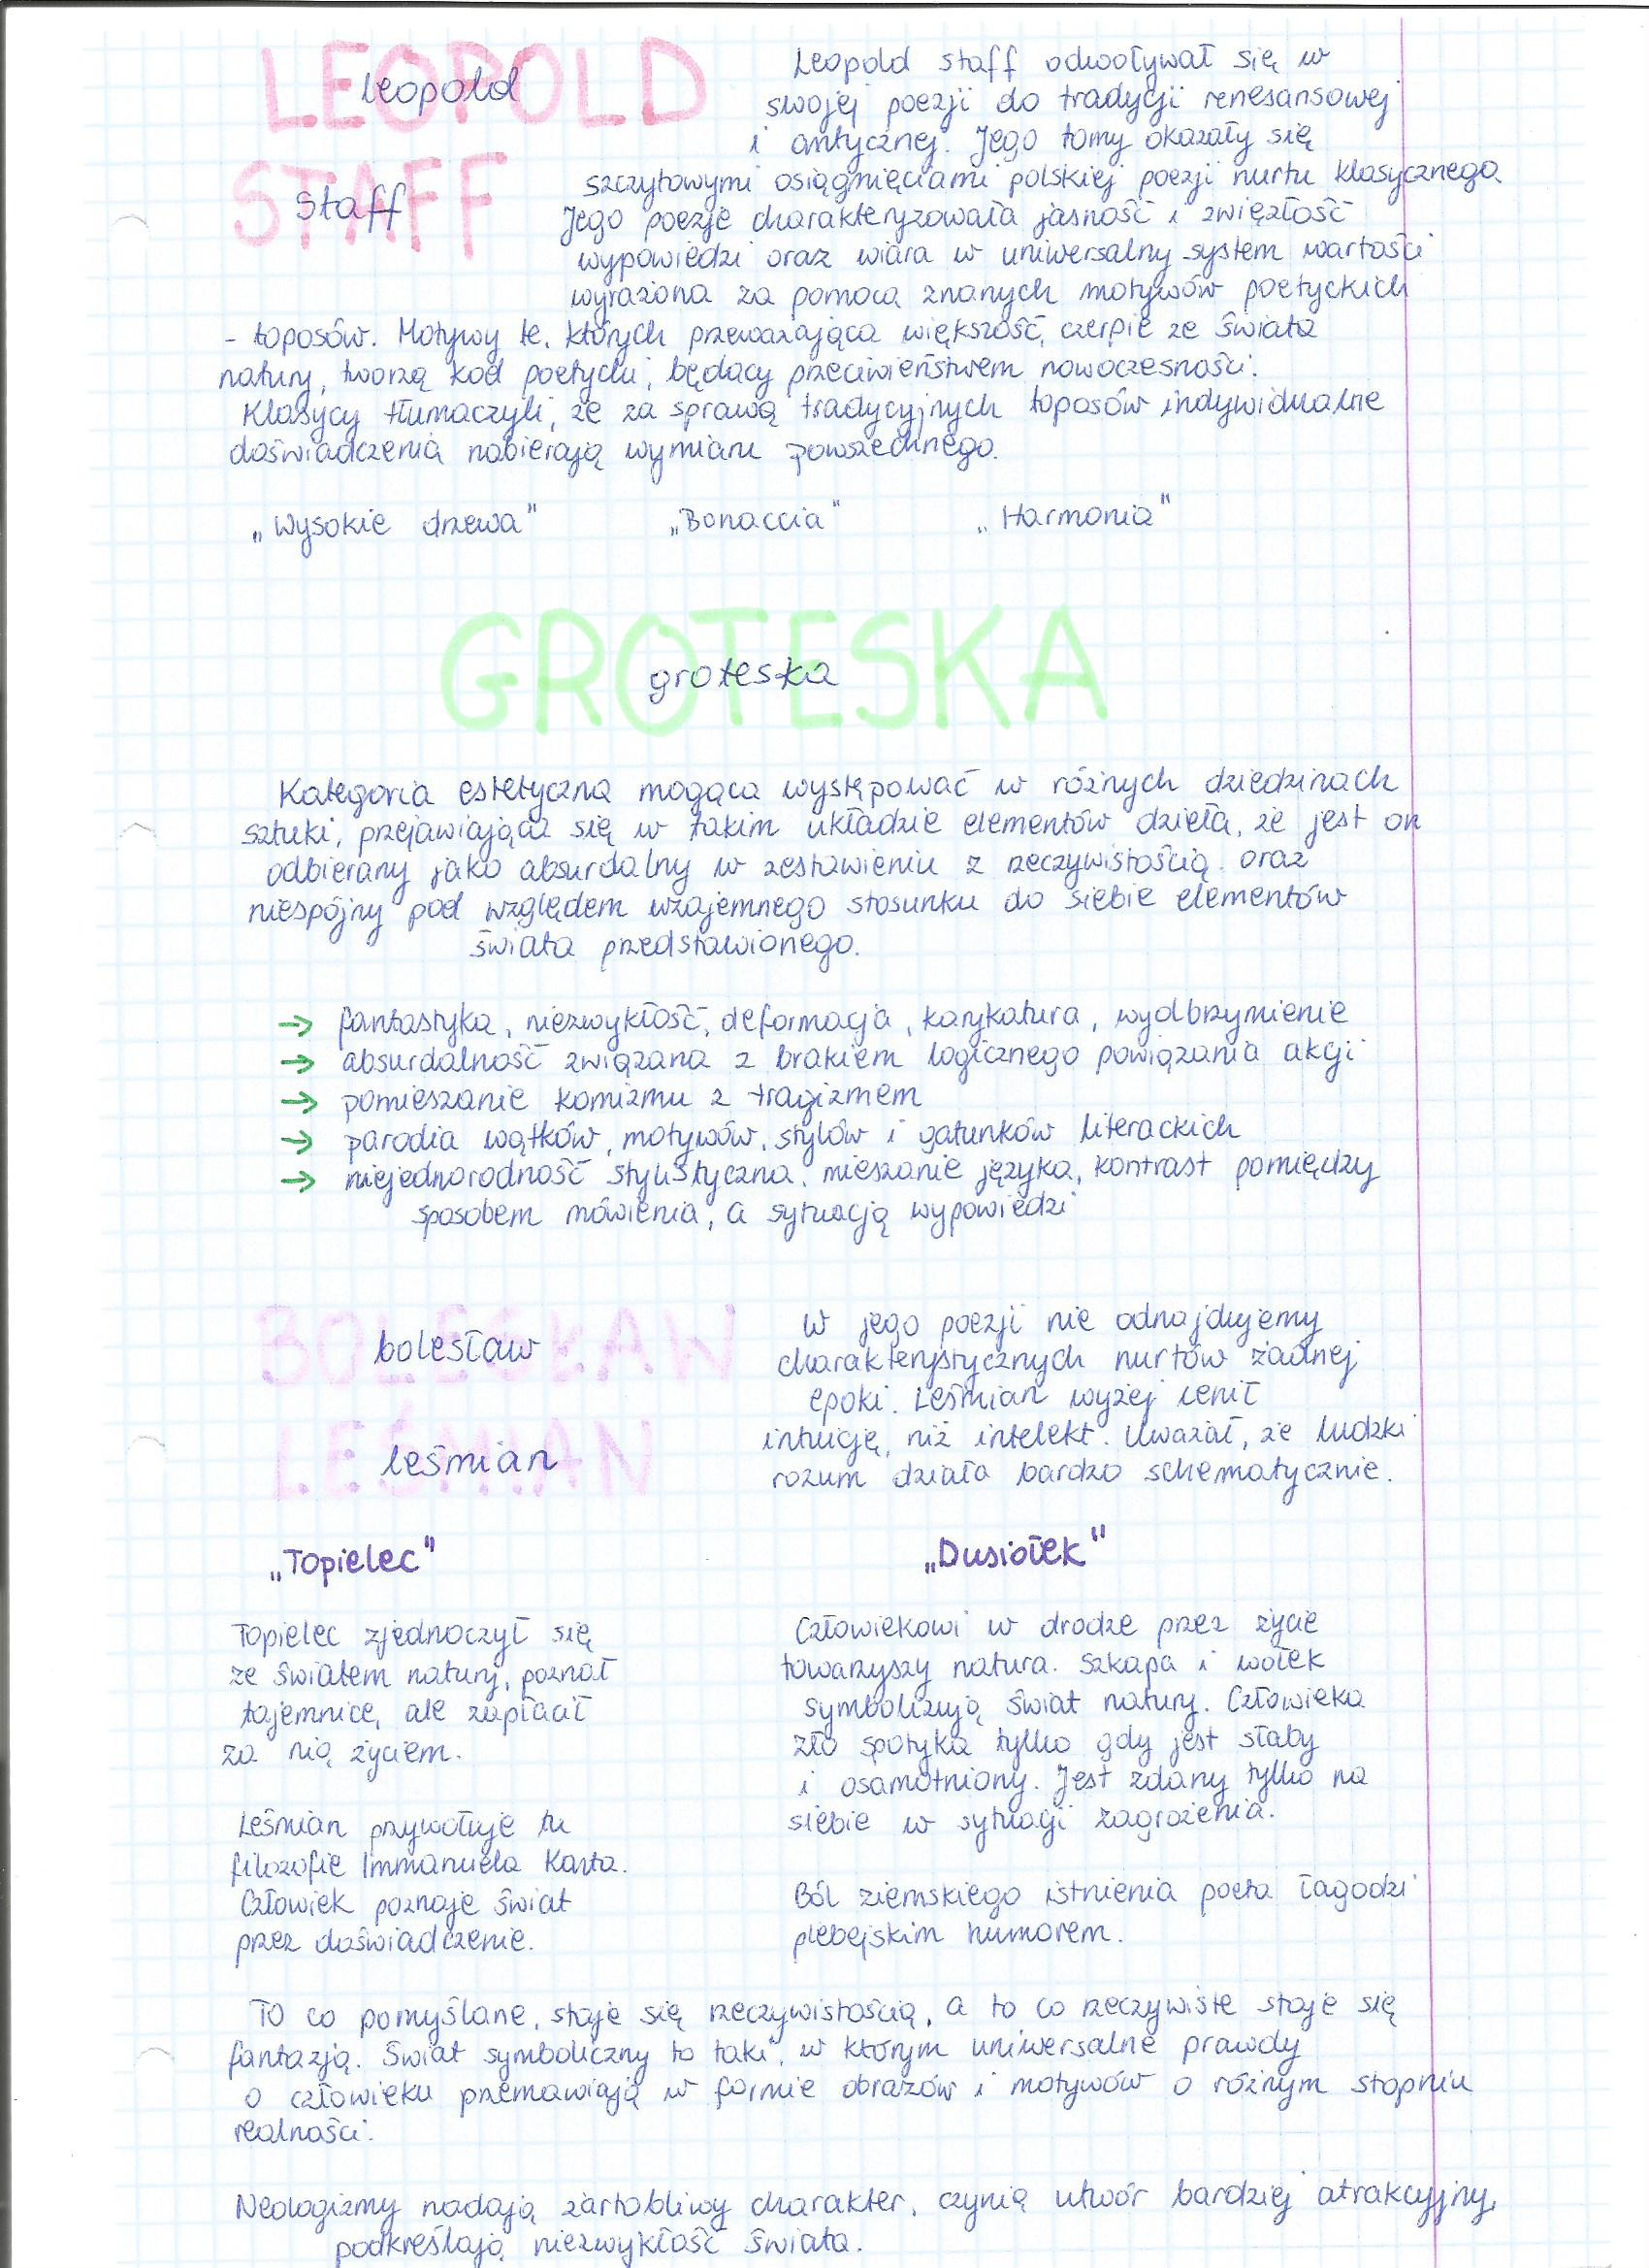 LEOPOLD
leopold
STAFF
staff
Leopold Staff odwoływał się w
swojej poezji do tradycji renesansowej
i antycznej. Jego tomy okazały się
szczytowymi osiągnięciami polskiej poezji nurtu klasycznego.
Jego poezje charakteryzowała jasność i zwięzłość
wypowiedzi oraz wiara w uniwersalny system wartości
wyrażona za pomocą znanych motywów poetyckich
- toposów. Motywy te, których przeważająca większość, czerpie ze świata
natury, tworzą kod poetycki, będący przeciwieństwem nowoczesności.
Klasycy tłumaczyli, że za sprawą tradycyjnych toposów indywidualne
doświadczenia nabierają wymiaru powszechnego.
„Wysokie drzewa" „Bonaccia" „Harmonia"
GROTESKA
groteska
Kategoria estetyczna mogąca występować w różnych dziedzinach
sztuki, przejawiająca się w takim układzie elementów dzieła, że jest on
odbierany jako absurdalny w zestawieniu z rzeczywistością oraz
niespójny pod względem wzajemnego stosunku do siebie elementów
świata przedstawionego.
→ fantastyka, niezwykłość, deformacja, karykatura, wyolbrzymienie
→ absurdalność związana z brakiem logicznego powiązania akcji
→ pomieszanie komizmu z tragizmem
→ parodia wątków, motywów, stylów i gatunków literackich
→ niejednorodność stylistyczna, mieszanie języka, kontrast pomiędzy
sposobem mówienia, a sytuacją wypowiedzi
BOLESŁAW
bolesław
LEŚMIAN
leśmian
W jego poezji nie odnajdujemy
charakterystycznych nurtów żadnej
epoki. Leśmian wyżej cenił
intuicję, niż intelekt. Uważał, że ludzki
rozum działa bardzo schematycznie.
„Topielec"
Topielec zjednoczył się
ze światem natury, poznał
tajemnice, ale zapłacił
za nią życiem.
Leśmian przywołuje tu
filozofię Immanuela Kanta.
Człowiek poznaje świat
przez doświadczenie.
„Dusiołek"
Człowiekowi w drodze przez życie
towarzyszy natura. Szkapa i wołek
symbolizują świat natury. Człowieka
zło spotyka tylko gdy jest słaby
i osamotniony. Jest zdany tylko na
siebie w sytuacji zagrożenia.
Ból ziemskiego istnienia poeta łagodzi
plebejskim humorem.
To co pomyślane, staje się rzeczywistością, a to co rzeczywiste staje się
fantazją. Świat symboliczny to taki, w którym uniwersalne prawdy
o człowieku przemawiają w formie obrazów i motywów o różnym stopniu
realności.
Neologizmy nadają żartobliwy charakter, czynią utwór bardziej atrakcyjny,
podkreślają niezwykłość świata.